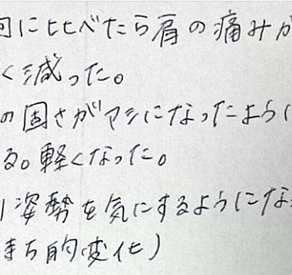 回に比べたら肩の痛みが
く減った。
の固さがマシになったように
る。軽くなった。
姿勢を気にするようにな
持ち的変化)